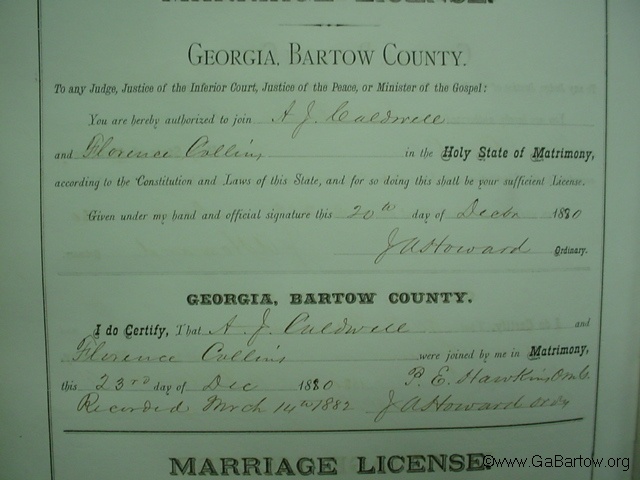 MARRIAGE LICENSE.
GEORGIA, BARTOW COUNTY.
To any Judge, Justice of the Inferior Court, Justice of the Peace, or Minister of the Gospel:
You are hereby authorized to join A J. Caldwell
and Florence Collins in the Holy State of Matrimony,
according to the Constitution and Laws of this State, and for so doing this shall be your sufficient License.
Given under my hand and official signature this 20th day of Decbr 1880
J A Howard Ordinary.
GEORGIA, BARTOW COUNTY.
I do Certify, That A. J. Caldwell and
Florence Collins were joined by me in Matrimony,
this 23rd day of Dec 1880 P. E. Hawkins
Recorded Mrch 14th 1882 J A Howard Ordy
MARRIAGE LICENSE.
©www.GaBartow.org